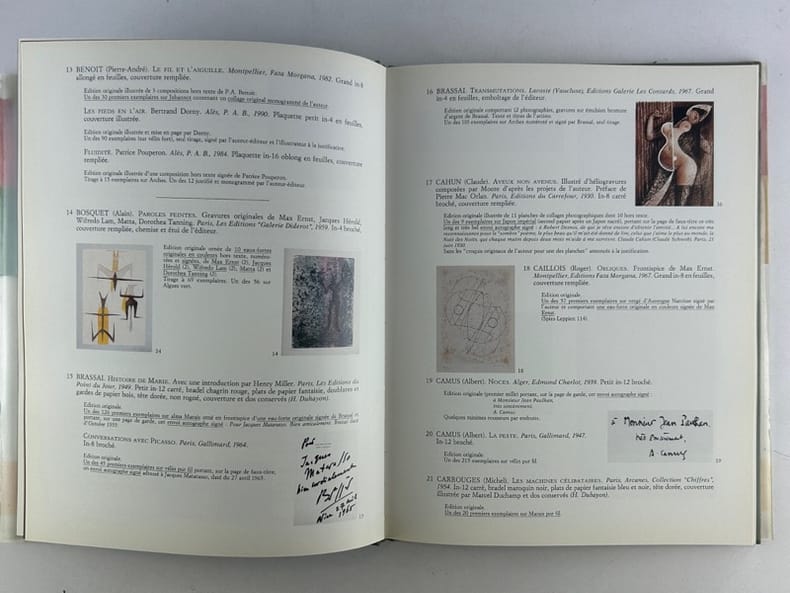 13 BENOIT (Pierre-André). LE FIL ET L'AIGUILLE. Montpellier, Fata Morgana, 1982. Grand in-8
allongé en feuilles, couverture rempliée.
Edition originale illustrée de 3 compositions hors texte de P.A. Benoit.
Un des 30 premiers exemplaires sur Johannot contenant un collage original monogrammé de l'auteur.
LES PIEDS EN L'AIR. Bertrand Dorny. Alès, P. A. B., 1990. Plaquette petit in-4 en feuilles,
couverture illustrée.
Edition originale illustrée et mise en page par Dorny.
Un des 90 exemplaires (sur vélin fort), seul tirage, signé par l'auteur-éditeur et l'illustrateur à la justification.
FLUIDITÉ. Patrice Pouperon. Alès, P. A. B., 1984. Plaquette in-16 oblong en feuilles, couverture
rempliée.
Edition originale illustrée d'une composition hors texte signée de Patrice Pouperon.
Tirage à 15 exemplaires sur Arches. Un des 12 justifié et monogrammé par l'auteur-éditeur.
14 BOSQUET (Alain). PAROLES PEINTES. Gravures originales de Max Ernst, Jacques Hérold,
Wifredo Lam, Matta, Dorothea Tanning. Paris, Les Editions "Galerie Diderot", 1959. In-4 broché,
couverture rempliée, chemise et étui de l'éditeur.
Edition originale ornée de 10 eaux-fortes
originales en couleurs hors texte, numéro-
tées et signées, de Max Ernst (2), Jacques
Hérold (2), Wifredo Lam (2), Matta (2) et
Dorothea Tanning (2).
Tirage à 69 exemplaires. Un des 56 sur
14
14
15 BRASSAÏ. HISTOIRE DE MARIE. Avec une introduction par Henry Miller. Paris, Les Editions du
Point du Jour, 1949. Petit in-12 carré, bradel chagrin rouge, plats de papier fantaisie, doublures et
gardes de papier bois, tête dorée, non rogné, couverture et dos conservés (H. Duhayon).
Edition originale.
Un des 120 premiers exemplaires sur alma Marais orné en frontispice d'une eau-forte originale signée de Brassaï et
portant, sur une page de garde, cet envoi autographe signé : Pour Jacques Matarasso. Bien amicalement. Brassaï
CONVERSATIONS AVEC PICASSO. Paris, Gallimard, 1964.
In-8 broché.
Edition originale.
Un des 45 premiers exemplaires sur vélin pur fil portant, sur la page de faux-titre,
un envoi autographe signé adressé à Jacques Matarasso, daté du 27 avril 1965.
Pour
Jacques
Matarasso
bien cordialement
Brassaï
1965
15
16 BRASSAÏ. TRANSMUTATIONS. Lacoste (Vaucluse), Editions Galerie Les Contards, 1967. Grand
in-4 en feuilles, emboîtage de l'éditeur.
Edition originale comportant 12 photographies, gravures sur émulsion bromure
d'argent de Brassaï. Texte et titres de l'artiste.
Un des 100 exemplaires sur Arches numéroté et signé par Brassaï, seul tirage.
16
17 CAHUN (Claude). AVEUX NON AVENUS. Illustré d'héliogravures
composées par Moore d'après les projets de l'auteur. Préface de
Pierre Mac Orlan. Paris, Editions du Carrefour, 1930. In-8 carré
broché, couverture rempliée.
Edition originale illustrée de 11 planches de collages photographiques dont 10 hors texte.
Un des 9 exemplaires sur Japon impérial (second papier après un Japon nacré), portant sur la page de faux-titre ce très
18 CAILLOIS (Roger). OBLIQUES. Frontispice de Max Ernst.
Montpellier, Editions Fata Morgana, 1967. Grand in-8 en feuilles,
couverture rempliée.
Edition originale.
Un des 57 premiers exemplaires sur vergé d'Auvergne Narcisse signé par
l'auteur et comportant une eau-forte originale en couleurs signée de Max
Ernst.
(Spies-Leppien 114).
18
19 CAMUS (Albert). NOCES. Alger, Edmond Charlot, 1939. Petit in-12 broché.
Edition originale (premier millier) portant, sur la page de garde, cet envoi autographe signé :
à Monsieur Jean Paulhan,
très sincèrement
A. Camus
Quelques minimes rousseurs par endroits.
à Monsieur Jean Paulhan,
très sincèrement,
A. Camus
19
20 CAMUS (Albert). LA PESTE. Paris, Gallimard, 1947.
In-12 broché.
Edition originale.
Un des 215 exemplaires sur vélin pur fil.
21 CARROUGES (Michel). LES MACHINES CÉLIBATAIRES. Paris, Arcanes, Collection "Chiffres",
1954. In-12 carré, bradel maroquin noir, plats de papier fantaisie bleu et noir, tête dorée, couverture
illustrée par Marcel Duchamp et dos conservés (H. Duhayon).
Edition originale.
Un des 20 premiers exemplaires sur Marais pur fil.